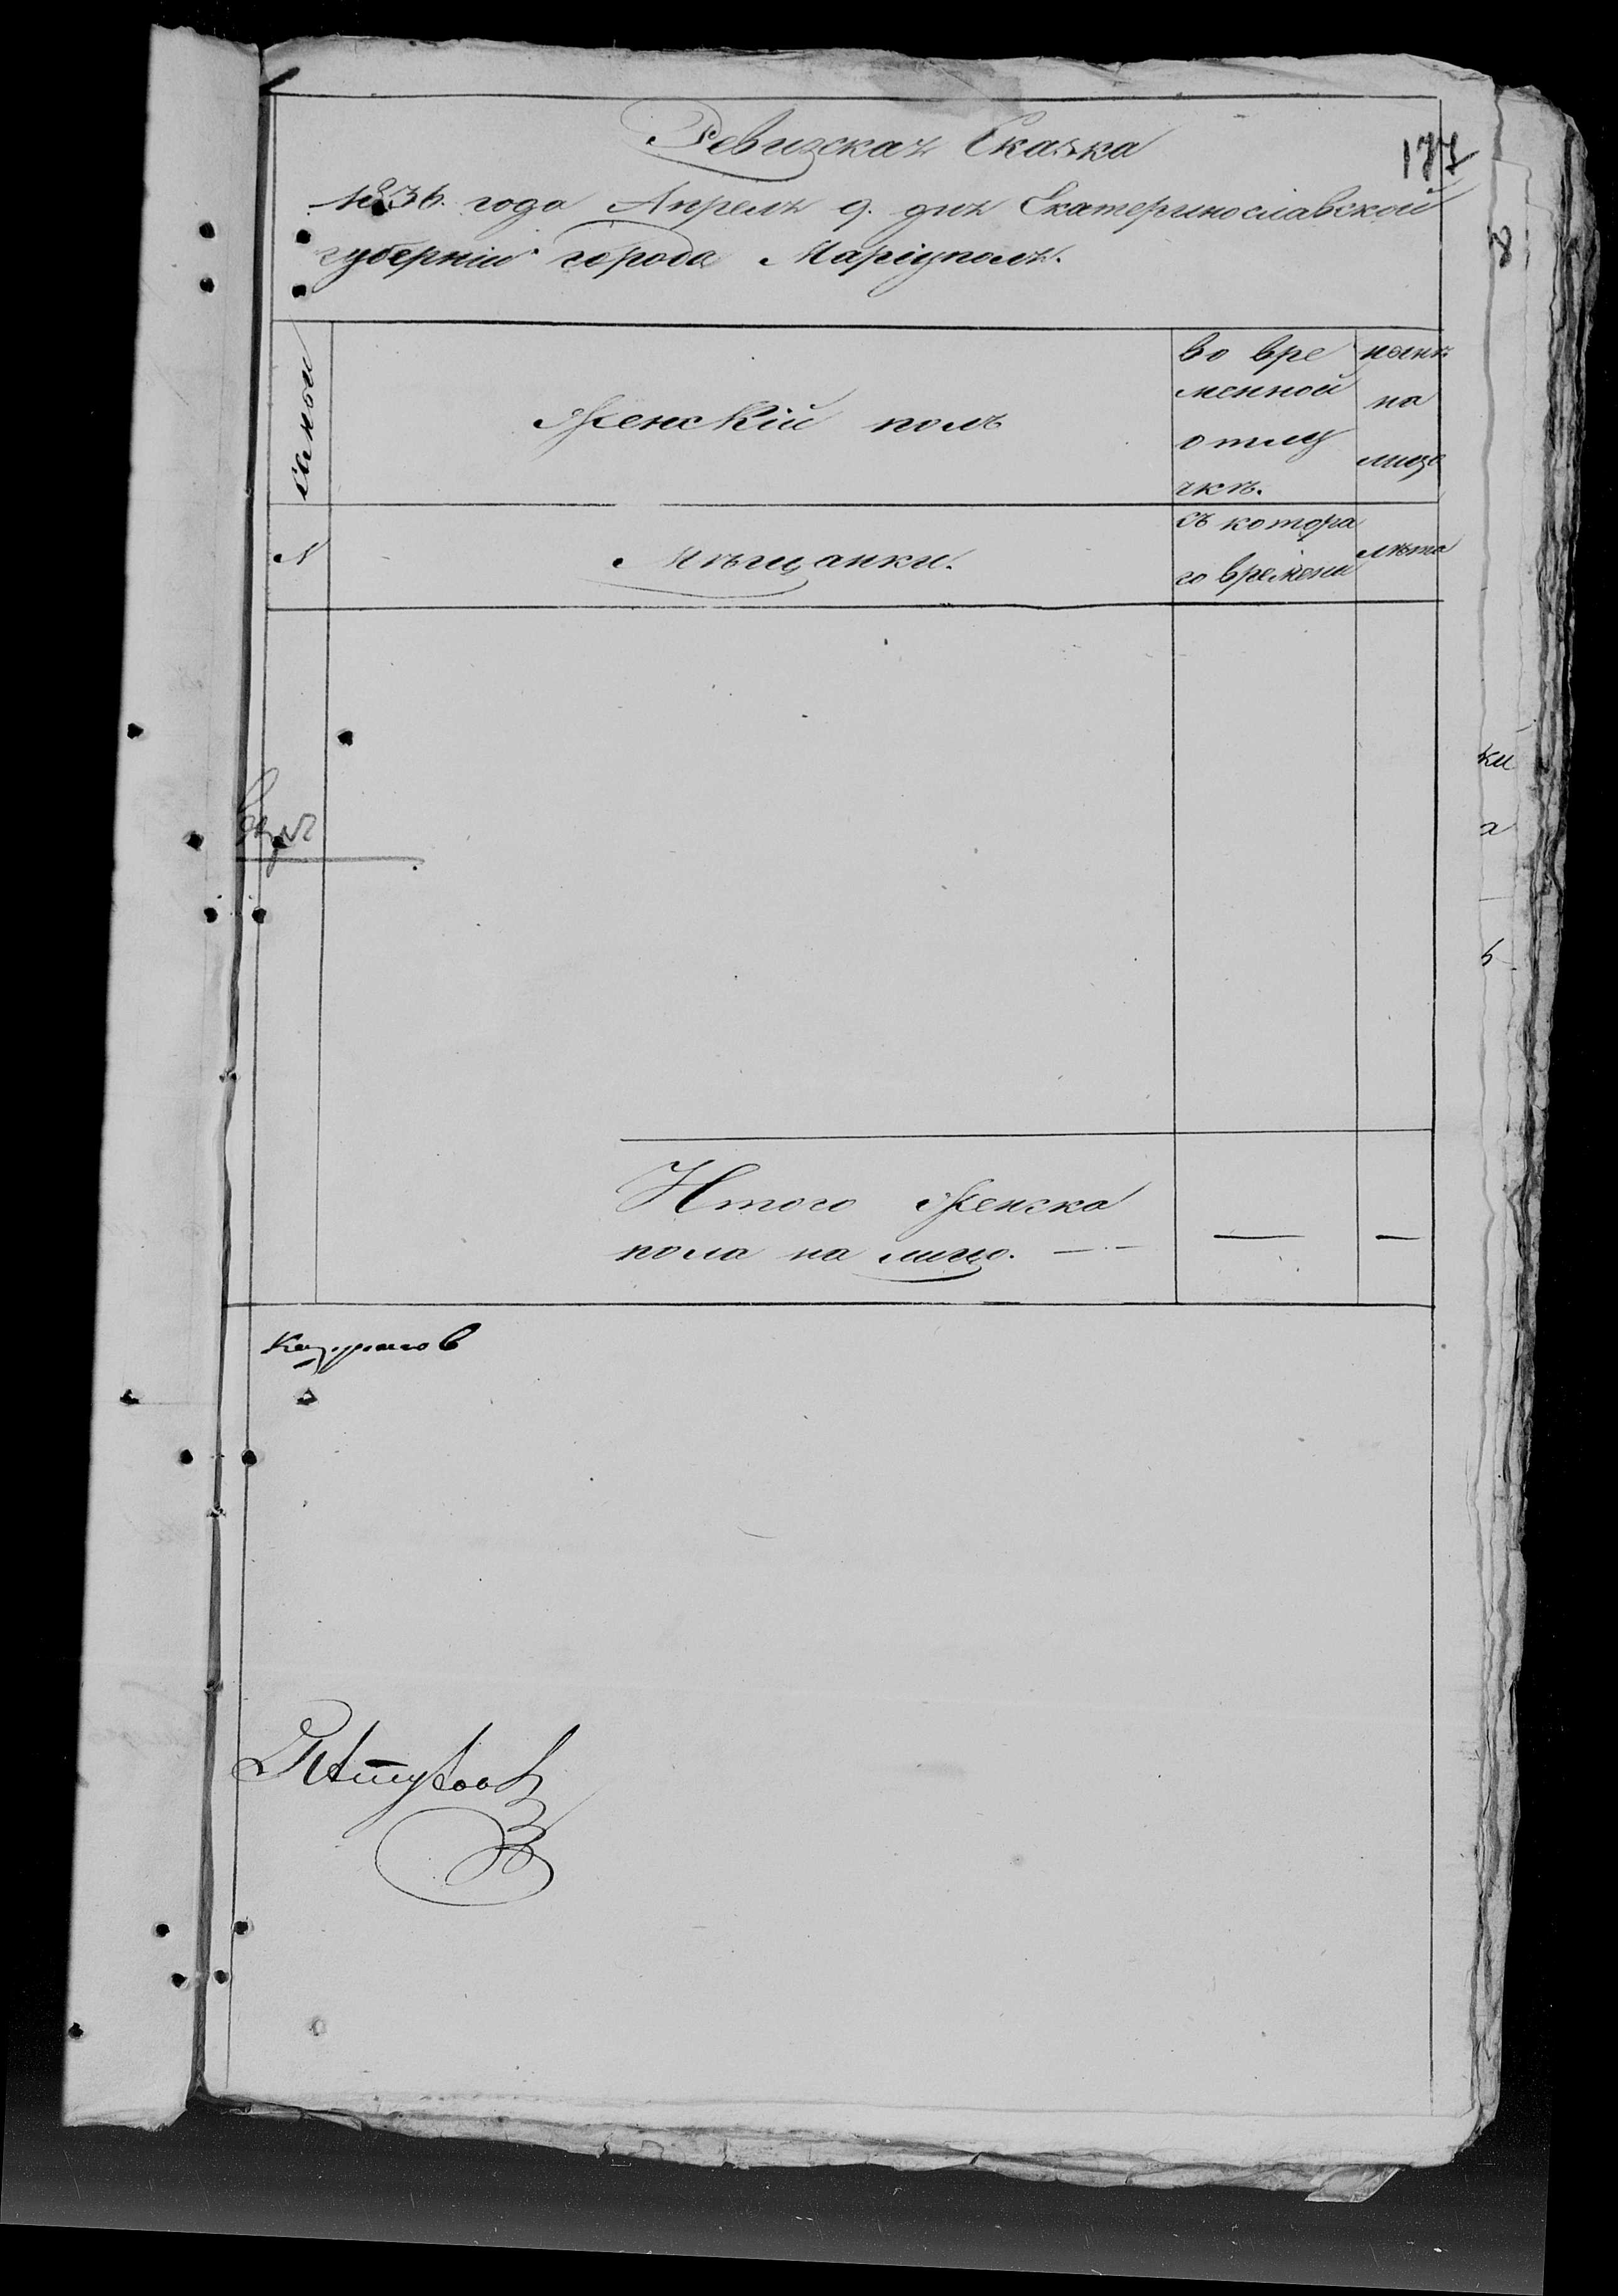 Ревизская Сказка
177
1836. года Апреля 9. дня Екатеринославской
губерніи города Маріуполя.
Семьи
Женскій полъ
во вре
менной
отлу
чкѣ.
нынѣ
на
лицо
№
Мѣщанки.
съ котора
го времени
лѣта
8
ки
Итого Женска
пола на лицо. — — —